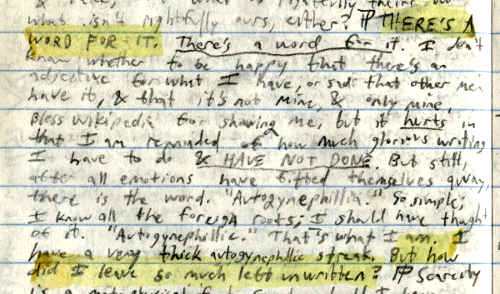 what isn't rightfully ours, either? ¶ THERE'S A
WORD FOR IT. There's a word for it. I don't
know whether to be happy that there's an
adjective for what I have, or sad that other men
have it, & that it's not mine, & only mine.
Bless Wikipedia for sharing me, but it hurts in
that I am reminded of how much glorious writing
I have to do & HAVE NOT DONE. But still,
after all emotions have sifted themselves away,
there is the word. "Autogynephillia." So simple;
I know all the foreign roots; I should have thought
of it. "Autogynephillic." That's what I am. I
have a very thick autogynephillic streak. But how
did I leave so much left unwritten? ¶ Scarcity
is a metaphysical fact